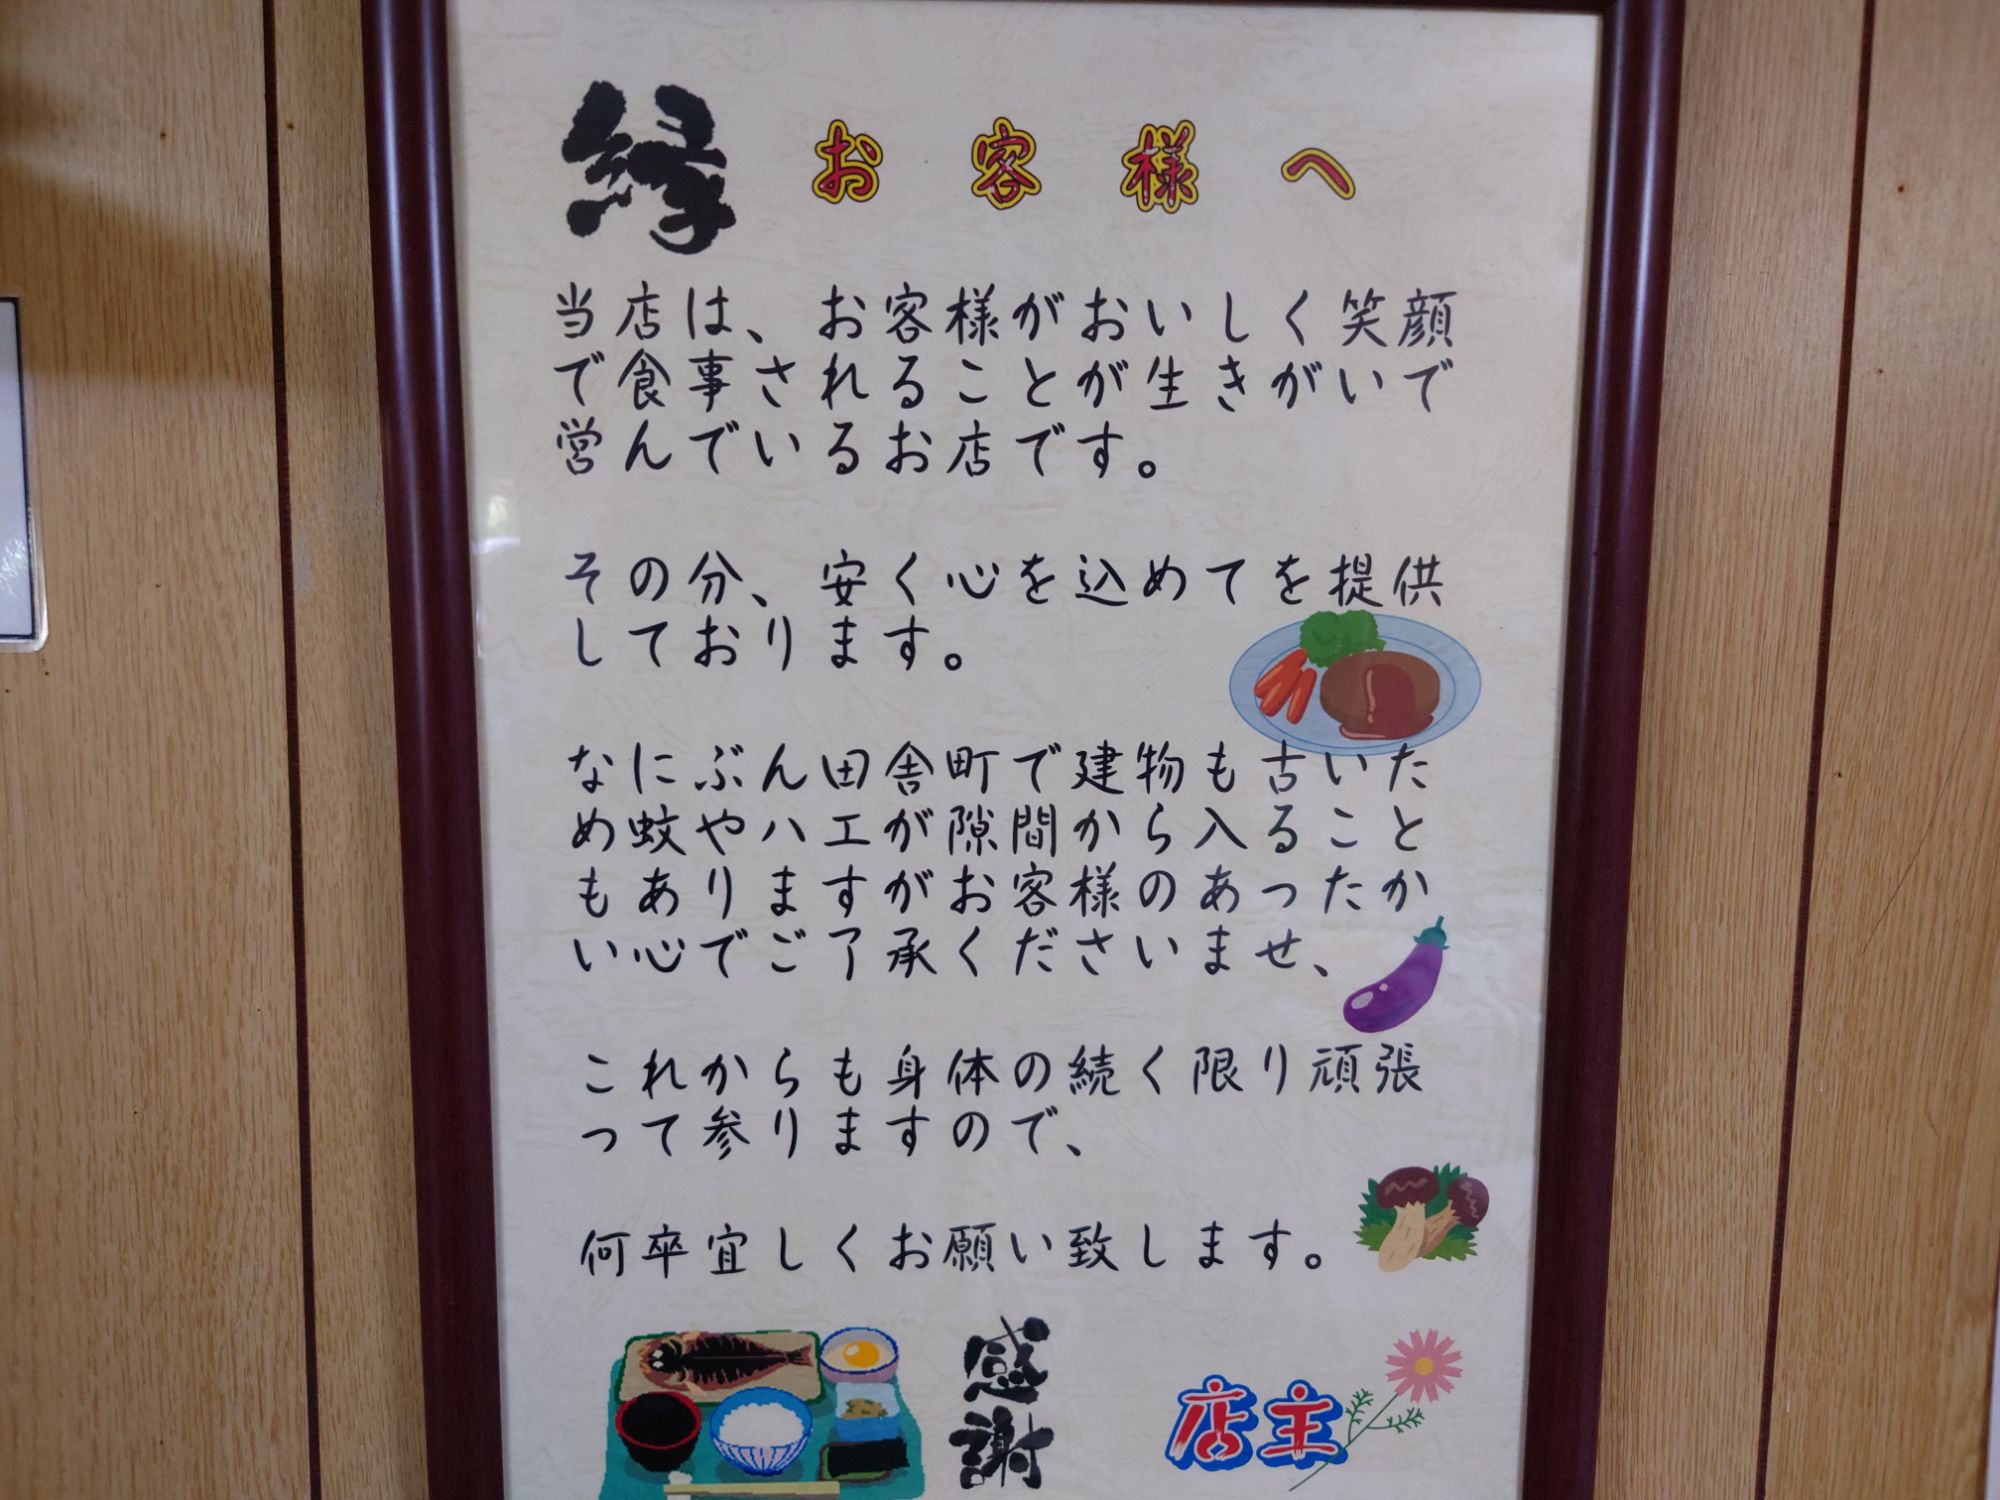 縁 お客様へ
当店は、お客様がおいしく笑顔
で食事されることが生きがいで
営んでいるお店です。
その分、安く心を込めてを提供
しております。
なにぶん田舎町で建物も古いた
め蚊やハエが隙間から入ること
もありますがお客様のあったか
い心でご了承くださいませ、
これからも身体の続く限り頑張
って参りますので、
何卒宜しくお願い致します。
感謝
店主